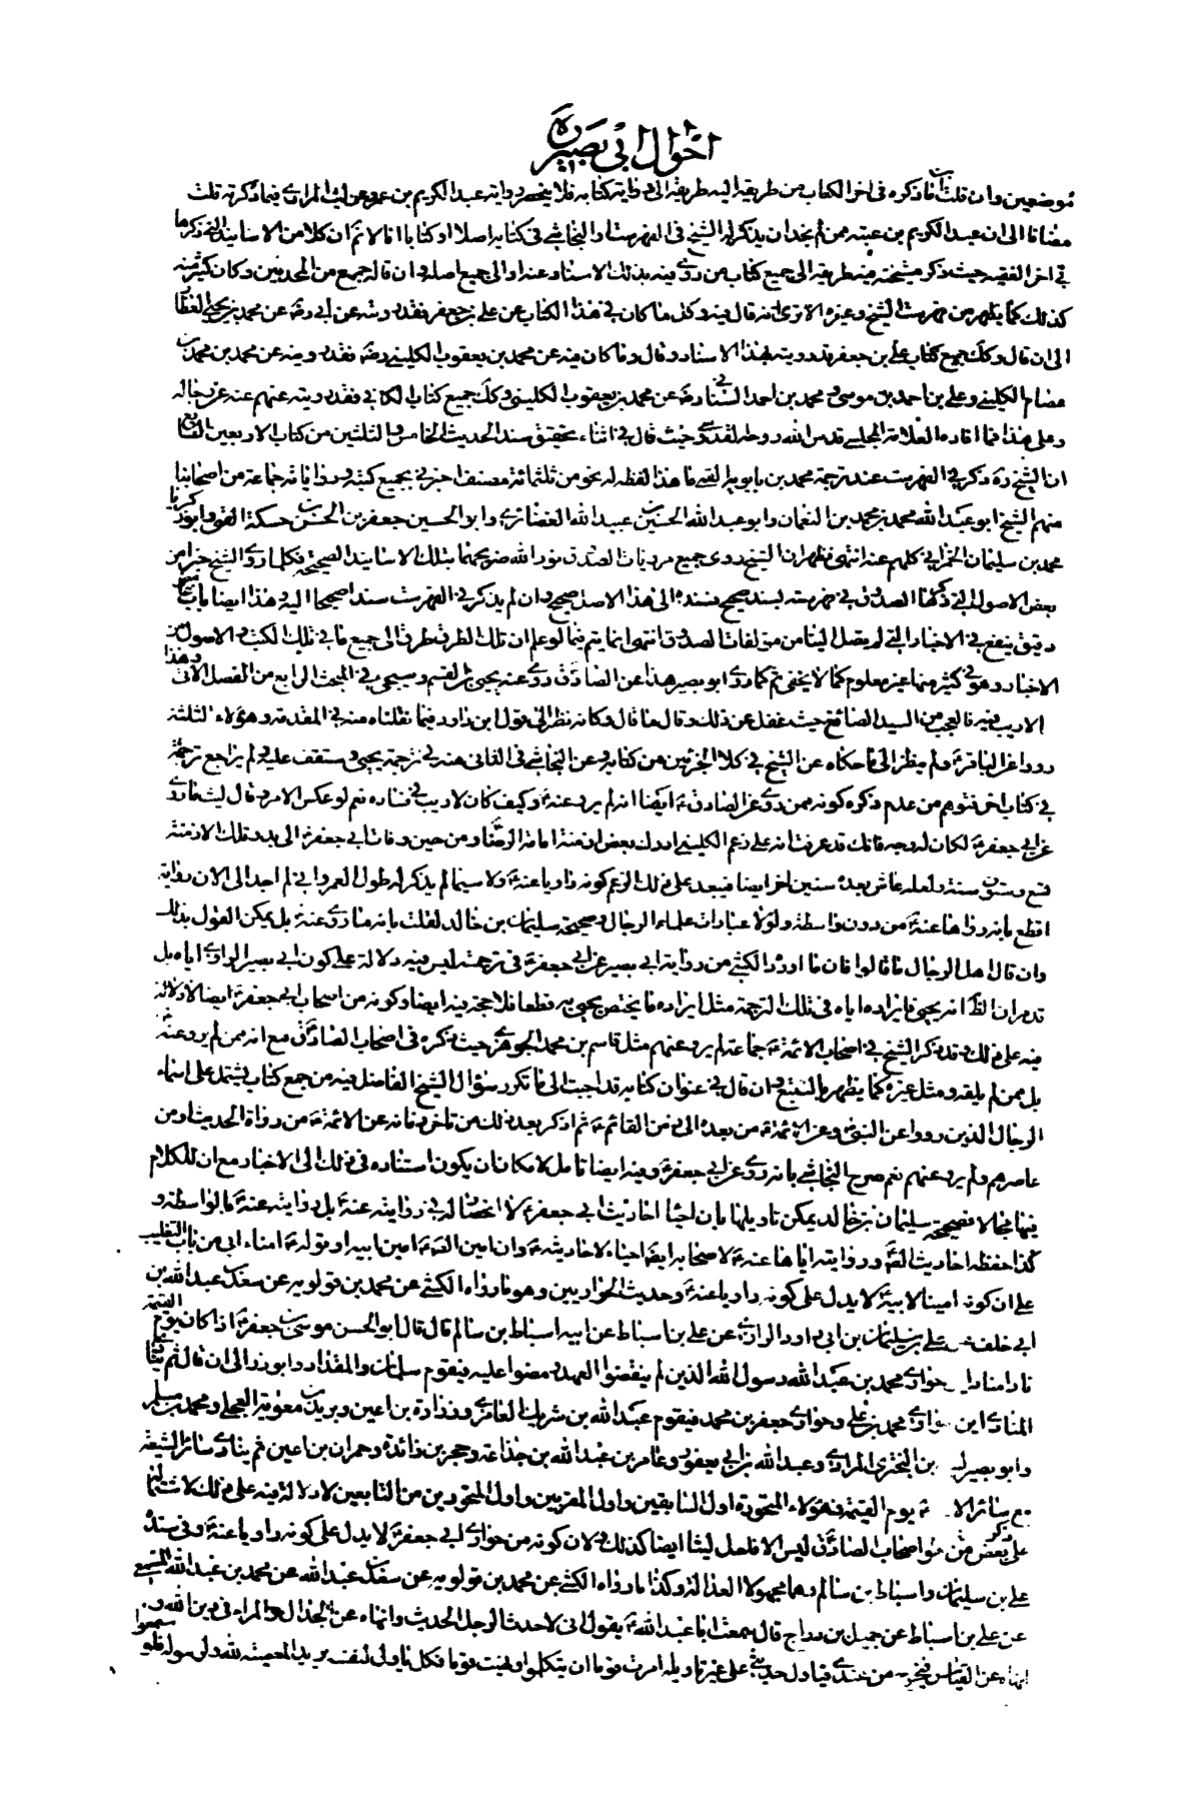 احوال ابی بصیر
موضعین وان قلت ان ما ذکره فی اخر الکتاب من طریقه الیه طریقه الی روایة کتابه فلا ینحصر روایة عبد الکریم بن عمرو عن لیث المرادی فیما ذکرته قلت
مضافا الی ان عبد الکریم بن عتبه ممن لم نجد ان یذکر له الشیخ فی الفهرست او النجاشی فی کتابه اصلا او کتابا انا لا نم ان کلا من الاسانید التی ذکرها
فی اخر الفقیه حیث ذکر مشیخته فیه طریقه الی جمیع کتاب من روی فیه بذلک الاسناد عنه او الی جمیع اصله وان قاله جمع من المحدثین وکان کثیر منه
کذلک کما یظهر من فهرست الشیخ وغیره الا تری انه قال فیه وکل ما کان فی هذا الکتاب عن علی بن جعفر فقد رویته عن ابی رضه عن محمد بن یحیی العطار
الی ان قال وکک جمیع کتاب علی بن جعفر قد رویته بهذا الاسناد وقال وما کان فیه عن محمد بن یعقوب الکلینی رضه فقد رویته عن محمد بن محمد بن
عصام الکلینی وعلی بن احمد بن موسی ومحمد بن احمد السنانی رضه عن محمد بن یعقوب الکلینی وکک جمیع کتاب الکافی فقد رویته عنهم عنه عن رجاله
وعلی هذا فما افاده العلامة المجلسی قدس الله روحه القدسی حیث قال فی اثناء تحقیق سند الحدیث الخامس والثلثین من کتاب الاربعین
ان الشیخ ره ذکر فی الفهرست عند ترجمة محمد بن بابویه القمی ما هذا لفظه له نحو من ثلثمائة مصنف اخبرنی بجمیع کتبه وروایاته جماعة من اصحابنا
منهم الشیخ ابو عبد الله محمد بن محمد بن النعمان وابو عبد الله الحسین بن عبید الله الغضائری وابو الحسین جعفر بن الحسن بن حسکة القمی وابو زکریا
محمد بن سلیمان الحمرانی کلهم عنه انتهی فظهر ان الشیخ روی جمیع مرویات الصدوق نور الله ضریحهما بتلک الاسانید الصحیحة فکلما روی الشیخ خبرا من
بعض الاصول التی ذکرها الصدوق فی فهرسته بسند صحیح فسنده الی هذا الاصل صحیح وان لم یذکر فی الفهرست سندا صحیحا الیه وهذا ایضا باب
دقیق ینفع فی الاخبار التی لم یصل الینا من مؤلفات الصدوق انتهی انما یتم فیما لو علم ان تلک الطرق طرق الی جمیع ما فی تلک الکتب والاصول من
الاخبار وهو فی کثیر منها غیر معلوم کما لا یخفی ثم کما روی ابو بصیر هذا عن الصادق ع روی عنه یحیی بن القسم وسیجیء فی المبحث الرابع من الفصل الاتی وهذا
لا ریب فیه فالعجب من السید الصائغ حیث غفل عن ذلک وقال ما قال وکانه نظر الی قول ابن داود فیما نقلناه عنه فی المقدمة وهؤلاء الثلثة
رووا عن الباقر ع ولم ینظر الی ما حکاه عن الشیخ فی کلا الجزئین من کتابه وعن النجاشی فی الثانی منه فی ترجمة یحیی وستقف علیه ولم یراجع ترجمته
فی کتاب اخر فتوهم من عدم ذکره کونه ممن روی عن الصادق ع ایضا انه لم یرو عنه ع وکیف کان لا ریب فی فساده نعم لو عکس الامر وقال لیث ما روی
عن ابی جعفر ع لکان له وجه فانک قد عرفت انه علی زعم الکلینی ادرک بعض ازمنة امامة الرضا ع ومن حین وفات ابی جعفر ع الی بدو تلک الازمنة
تسع وستون سنة ولعله عاش بعده سنین اخر ایضا فیبعد علی ذلک الزعم کونه راویا عنه ع ولا سیما لم یذکر له طول العمر وانی لم اجد الی الان روایة
اقطع بانه رواها عنه ع من دون واسطة ولولا عبارات علماء الرجال وصحیحة سلیمان بن خالد لقلت بانه ما روی عنه ع بل یمکن القول بذلک
وان قال اهل الرجال ما قالوا فان ما اورده الکشی من روایة ابی بصیر عن ابی جعفر ع فی ترجمته لیس فیه دلالة علی کون ابی بصیر الراوی ایاه بل
قد مر ان الظ انه یحیی فایراده ایاه فی تلک الترجمة مثل ایراده ما یختص بیحیی به قطعا فلا حجة فیه ایضا وکونه من اصحاب ابی جعفر ع ایضا لا دلالة
فیه علی ذلک وقد ذکر الشیخ فی اصحاب الائمة ع جماعة لم یرو عنهم مثل قاسم بن محمد الجوهری حیث ذکره فی اصحاب الصادق ع مع انه ممن لم یرو عنه ع
بل ممن لم یلقه ومثل غیره کما یظهر بالتتبع وان قال فی عنوان کتابه قد اجبت الی ما تکرر سؤال الشیخ الفاضل فیه من جمع کتاب یشتمل علی اسماء
الرجال الذین رووا عن النبی ص وعن الائمة ع من بعده الی زمن القائم ع ثم اذکر بعد ذلک من تاخر زمانه عن الائمة ع من رواة الحدیث او من
عاصرهم ولم یرو عنهم نعم صرح النجاشی بانه روی عن ابی جعفر ع وفیه ایضا تامل لامکان ان یکون استناده فی ذلک الی الاخبار مع ان للکلام
فیها مجالا فصحیحة سلیمان بن خالد یمکن تاویلها بان احیاء احادیث ابی جعفر ع لا اختصاص له فی روایته عنه ع بل روایته عنه ع بالواسطة و
کذا حفظه احادیث الصادق ع وروایته ایاها عنه ع لاصحابه ایضا احیاء لاحادیثه ع وان امین الصادق ع امین ابیه او قوله ع امناء ابی من باب التغلیب
علی ان کونه امینا لابیه ع لا یدل علی کونه راویا عنه ع وحدیث الحواریین وهو ما رواه الکشی عن محمد بن قولویه عن سعد بن عبد الله بن
ابی خلف عن علی بن سلیمان بن ابی داود الرازی عن علی بن اسباط عن ابیه اسباط بن سالم قال قال ابو الحسن موسی بن جعفر ع اذا کان یوم القیمة
نادی مناد حواری محمد بن عبد الله رسول الله الذین لم ینقضوا العهد ومضوا علیه فیقوم سلمان والمقداد وابو ذر الی ان قال ثم ینادی
المنادی این حواری محمد بن علی وحواری جعفر بن محمد فیقوم عبد الله بن شریک العامری وزرارة بن اعین وبرید بن معویة العجلی ومحمد بن مسلم
وابو بصیر لیث بن البختری المرادی وعبد الله بن ابی یعفور وعامر بن عبد الله بن جذاعة وحجر بن زائدة وحمران بن اعین ثم ینادی سائر الشیعة
مع سائر الائمة یوم القیمة فهؤلاء المتحورة اول السابقین واول المقربین واول المتحورین من التابعین لا دلالة فیه علی ذلک لاشتماله
علی ذکر بعض من هو من اصحاب الصادق ع لیس الا فلعل لیثا ایضا کذلک ولان کونه من حواری ابی جعفر ع لا یدل علی کونه راویا عنه ع وفی سنده
علی بن سلیمان واسباط بن سالم وهما مجهولا العدالة وکذا ما رواه الکشی عن محمد بن قولویه عن سعد بن عبد الله عن محمد بن عبد الله المسمعی
عن علی بن اسباط عن جمیل بن دراج قال سمعت ابا عبد الله ع یقول انی لاحدث الرجل الحدیث وانهاه عن الجدال والمراء فی دین الله و
انهاه عن القیاس فیخرج من عندی فیاول حدیثی علی غیر تاویله امرت قوما ان یتکلموا ونهیت قوما فکل یاول لنفسه یرید المعصیة لله ولرسوله فلو سمعوا